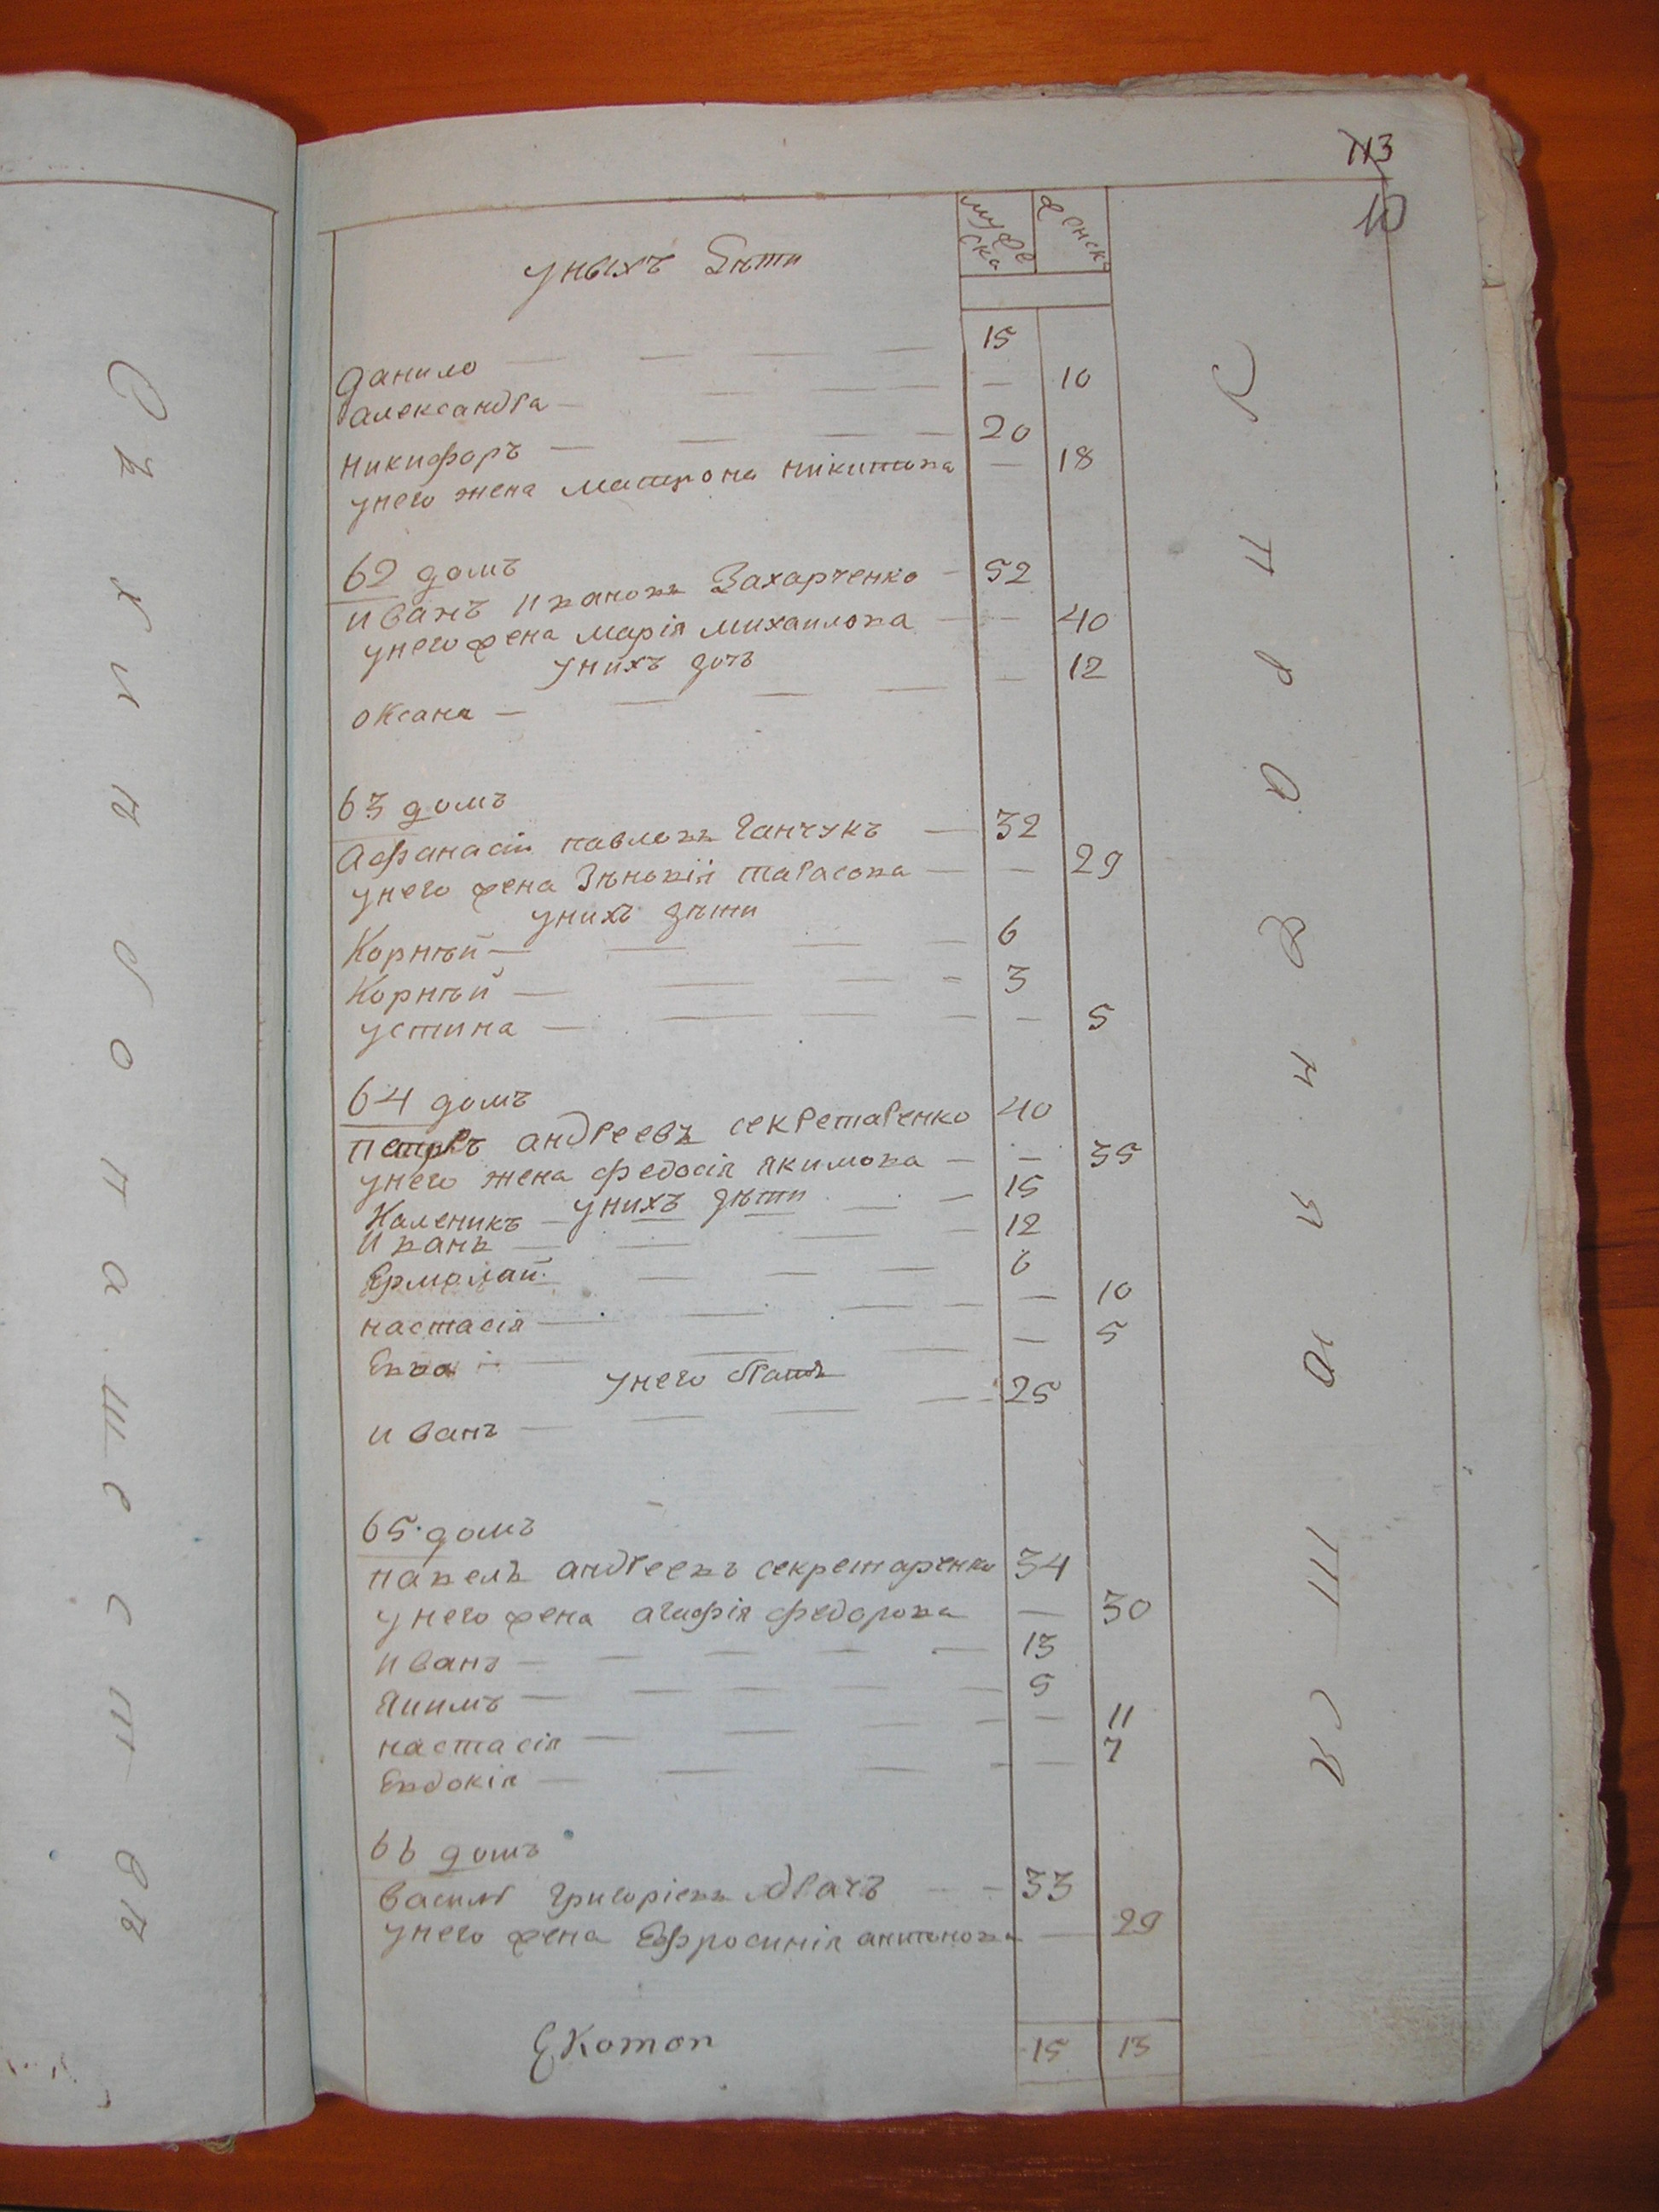 113
10
муже
ска
женска
уныхъ дѣти
данило — — — — 15
александра — — — — — 10
никифоръ — — — — 20
унего жена матрона никитова — 18
62 домъ
иванъ ивановъ Захарченко — 52
унего жена марія михаилова — — 40
унихъ дочь
оксана — — — — — 12
63 домъ
афанасій павловъ Ганчукъ — 32
унего жена Зѣновія тарасова — — 29
унихъ дѣти
Корнѣй — — — — 6
Корнѣй — — — — 3
устина — — — — — 5
64 домъ
петръ андреевъ секретаренко 40
унего жена федосія якимова — — 35
унихъ дѣти
Каленикъ — — — — — 15
иванъ — — — — 12
Ермолай — — — 6
настасія — — — — — 10
Евва — — — — 5
унего братъ
иванъ — — — — 25
65 домъ
павелъ андреевъ секретаренко 34
унего жена агафія федорова — 30
иванъ — — — — — 13
якимъ — — — — — 5
настасія — — — — — 11
Евдокія — — — — 7
66 домъ
василь григоріевъ — — 33
унего жена Ефросинія антонова — 29
15 13